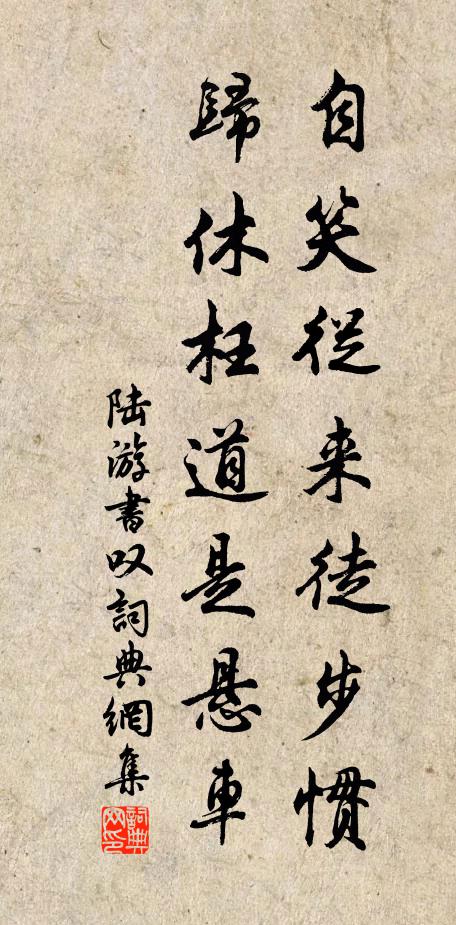 自笑從来徒步慣
歸休枉道是悬車
陆游書叹詞典網集
詞典網印